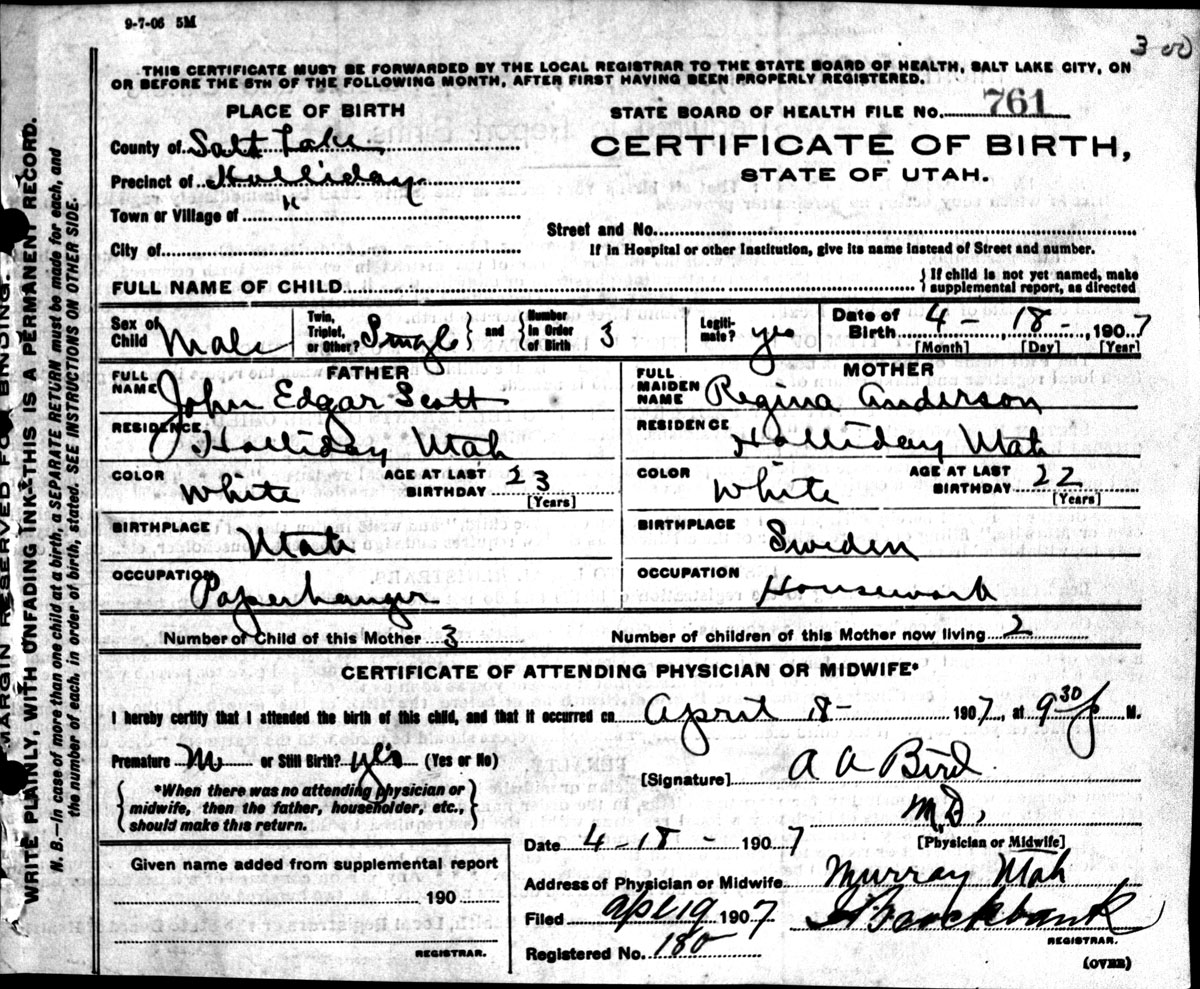 9-7-06 5M
3 00
THIS CERTIFICATE MUST BE FORWARDED BY THE LOCAL REGISTRAR TO THE STATE BOARD OF HEALTH, SALT LAKE CITY, ON
OR BEFORE THE 5TH OF THE FOLLOWING MONTH, AFTER FIRST HAVING BEEN PROPERLY REGISTERED.
PLACE OF BIRTH
County of Salt Lake
Precinct of Holliday
Town or Village of "
City of
STATE BOARD OF HEALTH FILE No. 761
CERTIFICATE OF BIRTH,
STATE OF UTAH.
Street and No.
If in Hospital or other Institution, give its name instead of Street and number.
FULL NAME OF CHILD
If child is not yet named, make
supplemental report, as directed
Sex of Child Male
Twin, Triplet, or Other? Single and Number in Order of Birth 3
Legitimate? yes
Date of Birth 4 - 18 - 1907
[Month] [Day] [Year]
FATHER
FULL NAME John Edgar Scott
RESIDENCE Holliday Utah
COLOR White AGE AT LAST BIRTHDAY 23 [Years]
BIRTHPLACE Utah
OCCUPATION Paperhanger
MOTHER
FULL MAIDEN NAME Regina Anderson
RESIDENCE Holliday Utah
COLOR White AGE AT LAST BIRTHDAY 22 [Years]
BIRTHPLACE Sweden
OCCUPATION Housework
Number of Child of this Mother 3 Number of children of this Mother now living 2
CERTIFICATE OF ATTENDING PHYSICIAN OR MIDWIFE*
I hereby certify that I attended the birth of this child, and that it occurred on April 18 - 1907, at 9 30 p M.
Premature no or Still Birth? yes (Yes or No)
*When there was no attending physician or
midwife, then the father, householder, etc.,
should make this return.
[Signature] A A Bird
M.D.,
[Physician or Midwife]
Given name added from supplemental report
190
REGISTRAR.
Date 4 - 18 - 1907
Address of Physician or Midwife Murray Utah
Filed Apl 19 1907 Brockbank
REGISTRAR.
Registered No. 180
(OVER)
MARGIN RESERVED FOR BINDING.
WRITE PLAINLY, WITH UNFADING INK-THIS IS A PERMANENT RECORD.
N. B.—In case of more than one child at a birth, a SEPARATE RETURN must be made for each, and
the number of each, in order of birth, stated. SEE INSTRUCTIONS ON OTHER SIDE.